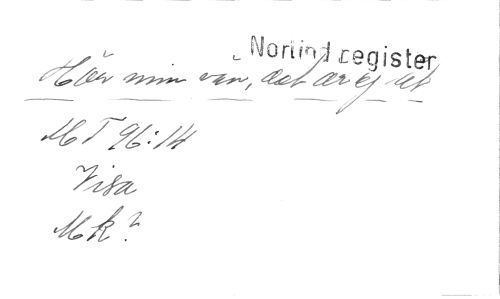 Norlind register
Hör min vän, det är ej ut
MT 96:14
Visa
Mk?